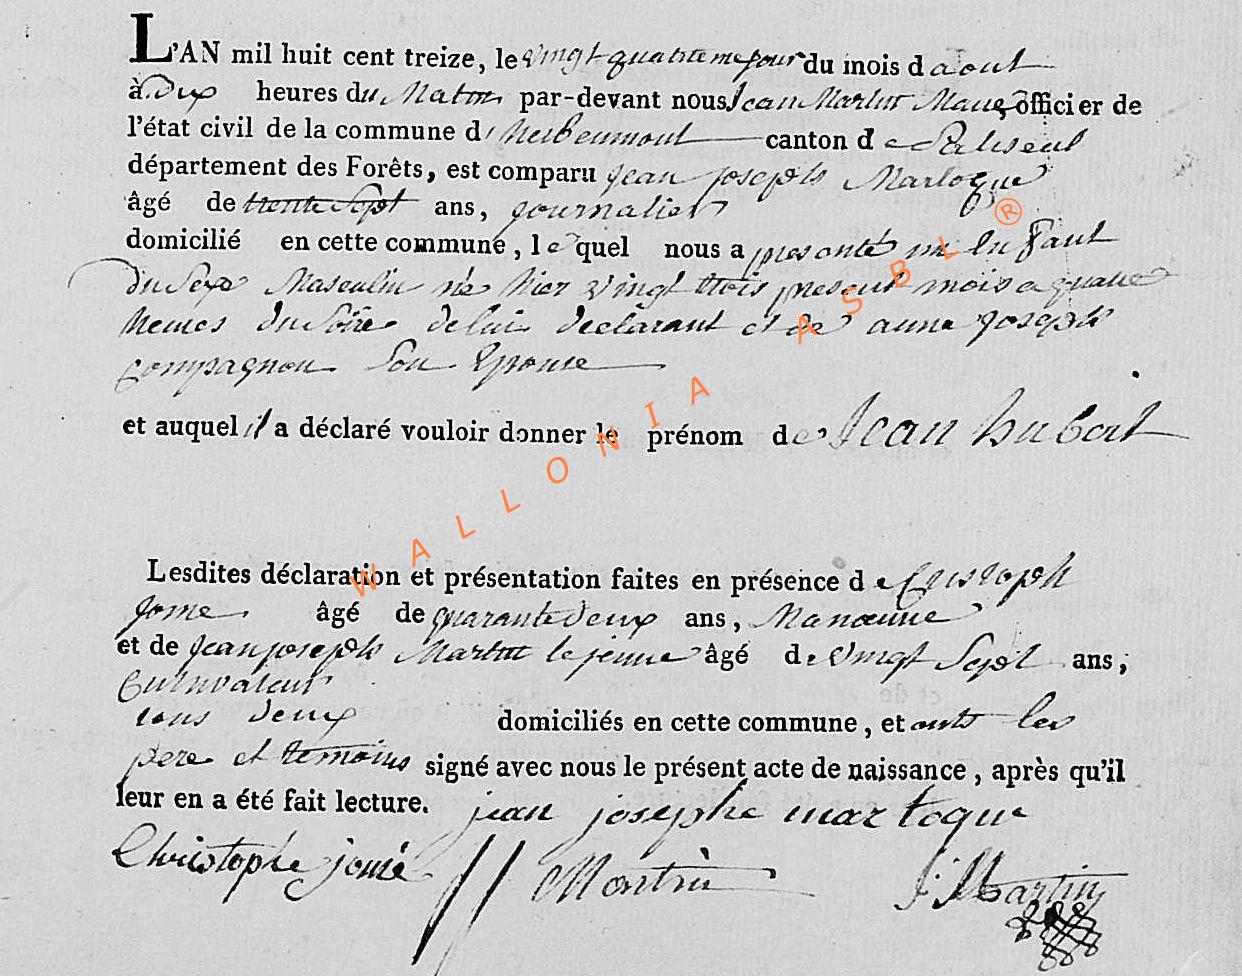 L'AN mil huit cent treize, le vingt quatrieme jour du mois d aout
à Dix heures du Matin par-devant nous Jean Martin Maire officier de
l'état civil de la commune d' herbeumont canton de Paliseul
département des Forêts, est comparu jean joseph Martoque
âgé de trente Sept ans, journalier
domicilié en cette commune, le quel nous a presenté un Enfant
du Sexe Masculin né hier vingt trois present mois a quatre
heures du Soire de lui declarant et de anne joseph
compagnon Son Epouse
et auquel il a déclaré vouloir donner le prénom de Jean hubert
Lesdites déclaration et présentation faites en présence de Cristoph
jome âgé de quarante deux ans, Manœuvre
et de jean joseph Martin le jeune âgé de vingt Sept ans,
Cultivateur
tous deux domiciliés en cette commune, et onts les
pere et temoins signé avec nous le présent acte de naissance, après qu'il
leur en a été fait lecture. jean josephe martoque
Christophe jomé Martin J: Martin
WALLONIA ASBL ®